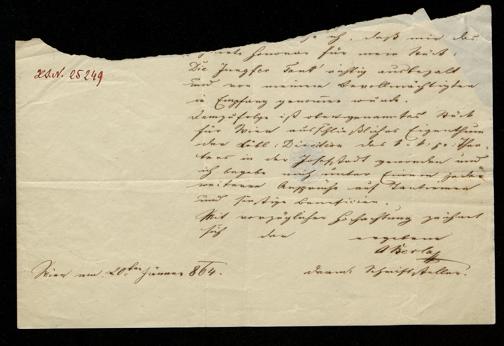 daß mir das
Honorar für mein Stück:
"Die Jungfer Tant" richtig ausbezahlt
und von meinem Bevollmächtigten
in Empfang genommen wurde.
Demzufolge ist obengenanntes Stück
für Wien ausschließliches Eigenthum
der Löbl: Direction des k. k. pr: Thea-
ters in der Josefstadt geworden und
ich begebe mich immer jedes
weiteren Anspruchs auf Tantiemen
und sonstige Beneficien.
Mit vorzüglicher Hochachtung zeichnet
sich der ergebene
A Berla
dram: Schriftsteller.
Wien am 20ten Jänner 864.
H.I.N. 25249